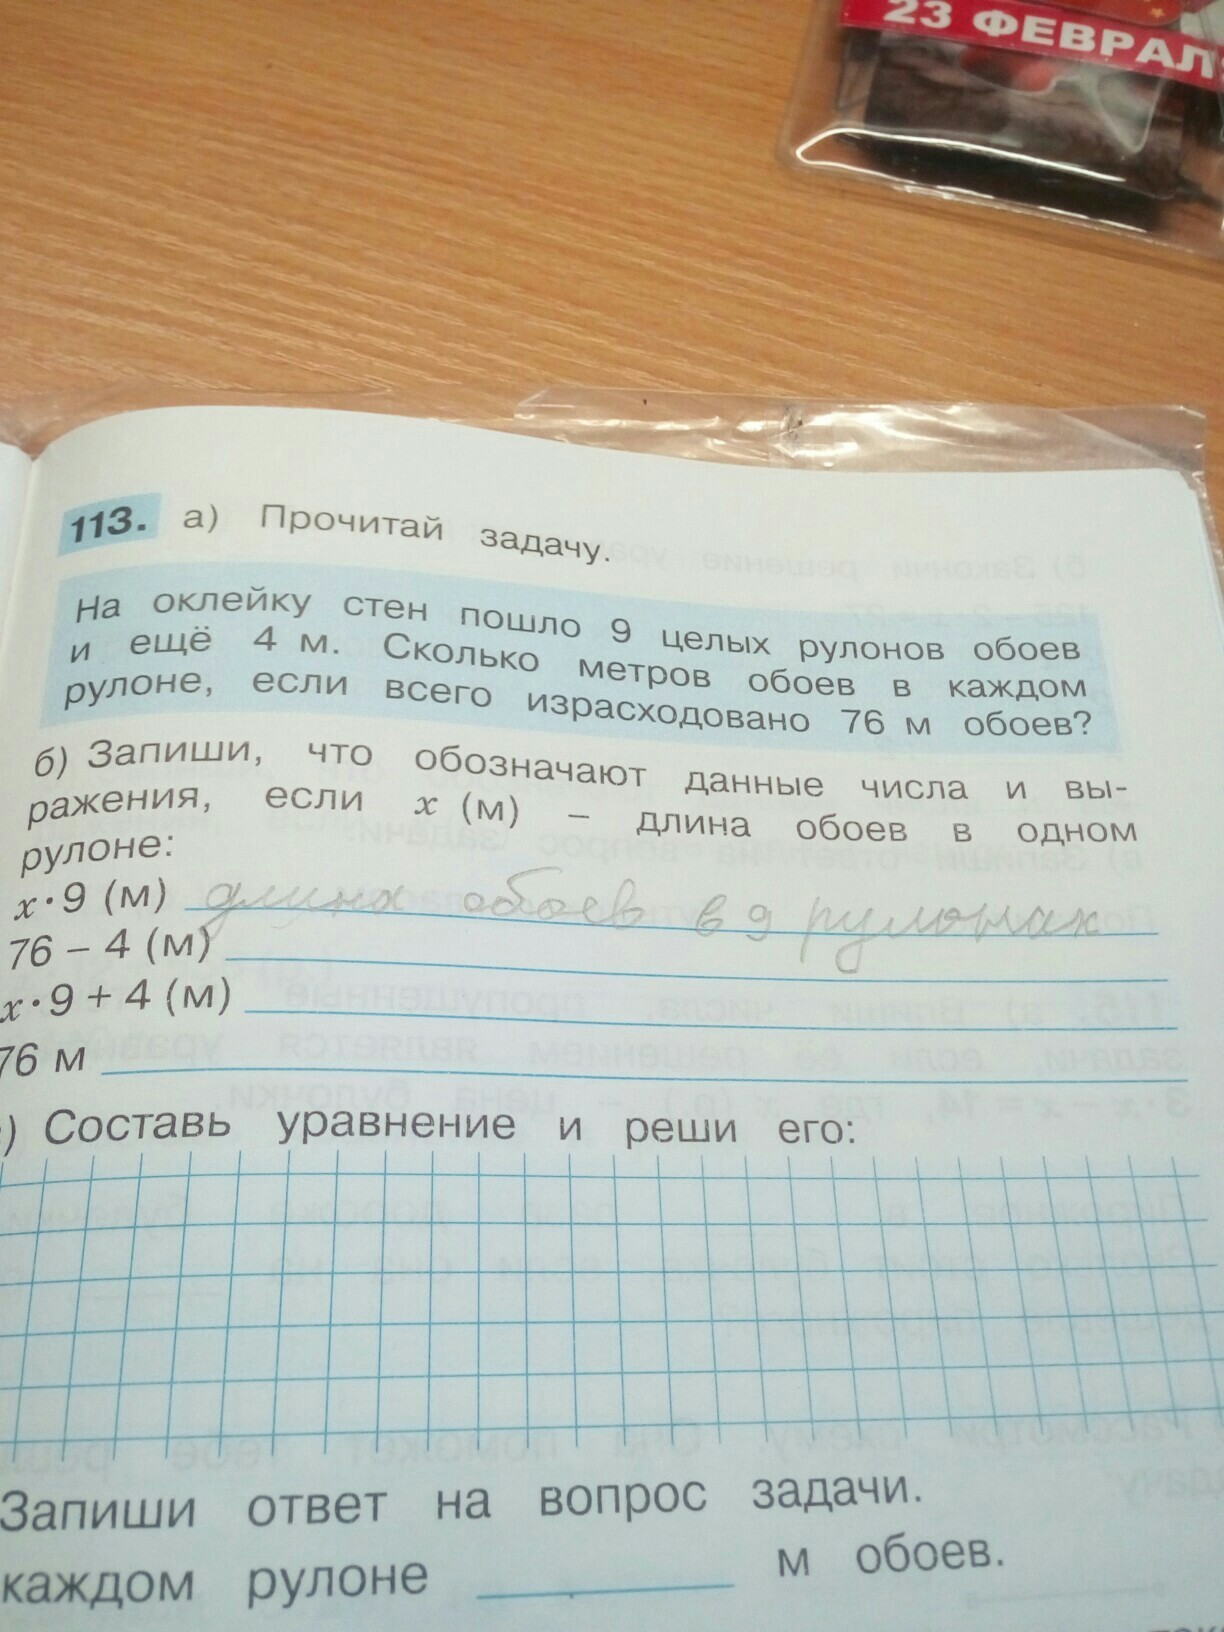 23 ФЕВРАЛЯ
113. а) Прочитай задачу.
На оклейку стен пошло 9 целых рулонов обоев
и ещё 4 м. Сколько метров обоев в каждом
рулоне, если всего израсходовано 76 м обоев?
б) Запиши, что обозначают данные числа и вы-
ражения, если x (м) – длина обоев в одном
рулоне:
x·9 (м) длина обоев в 9 рулонах
76 – 4 (м)
x·9 + 4 (м)
76 м
) Составь уравнение и реши его:
Запиши ответ на вопрос задачи.
каждом рулоне м обоев.